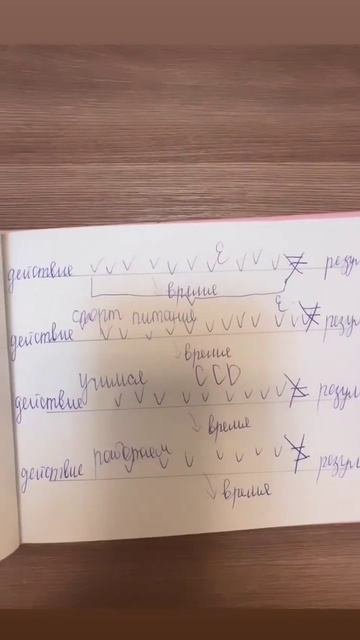 действие резул
время
спорт питание
действие резул
время
учимся ССD
действие резул
время
действие работаем резул
время